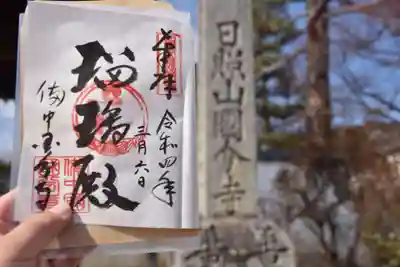 奉拝
令和四年
三月六日
瑠璃殿
備中国分寺
日照山國分寺